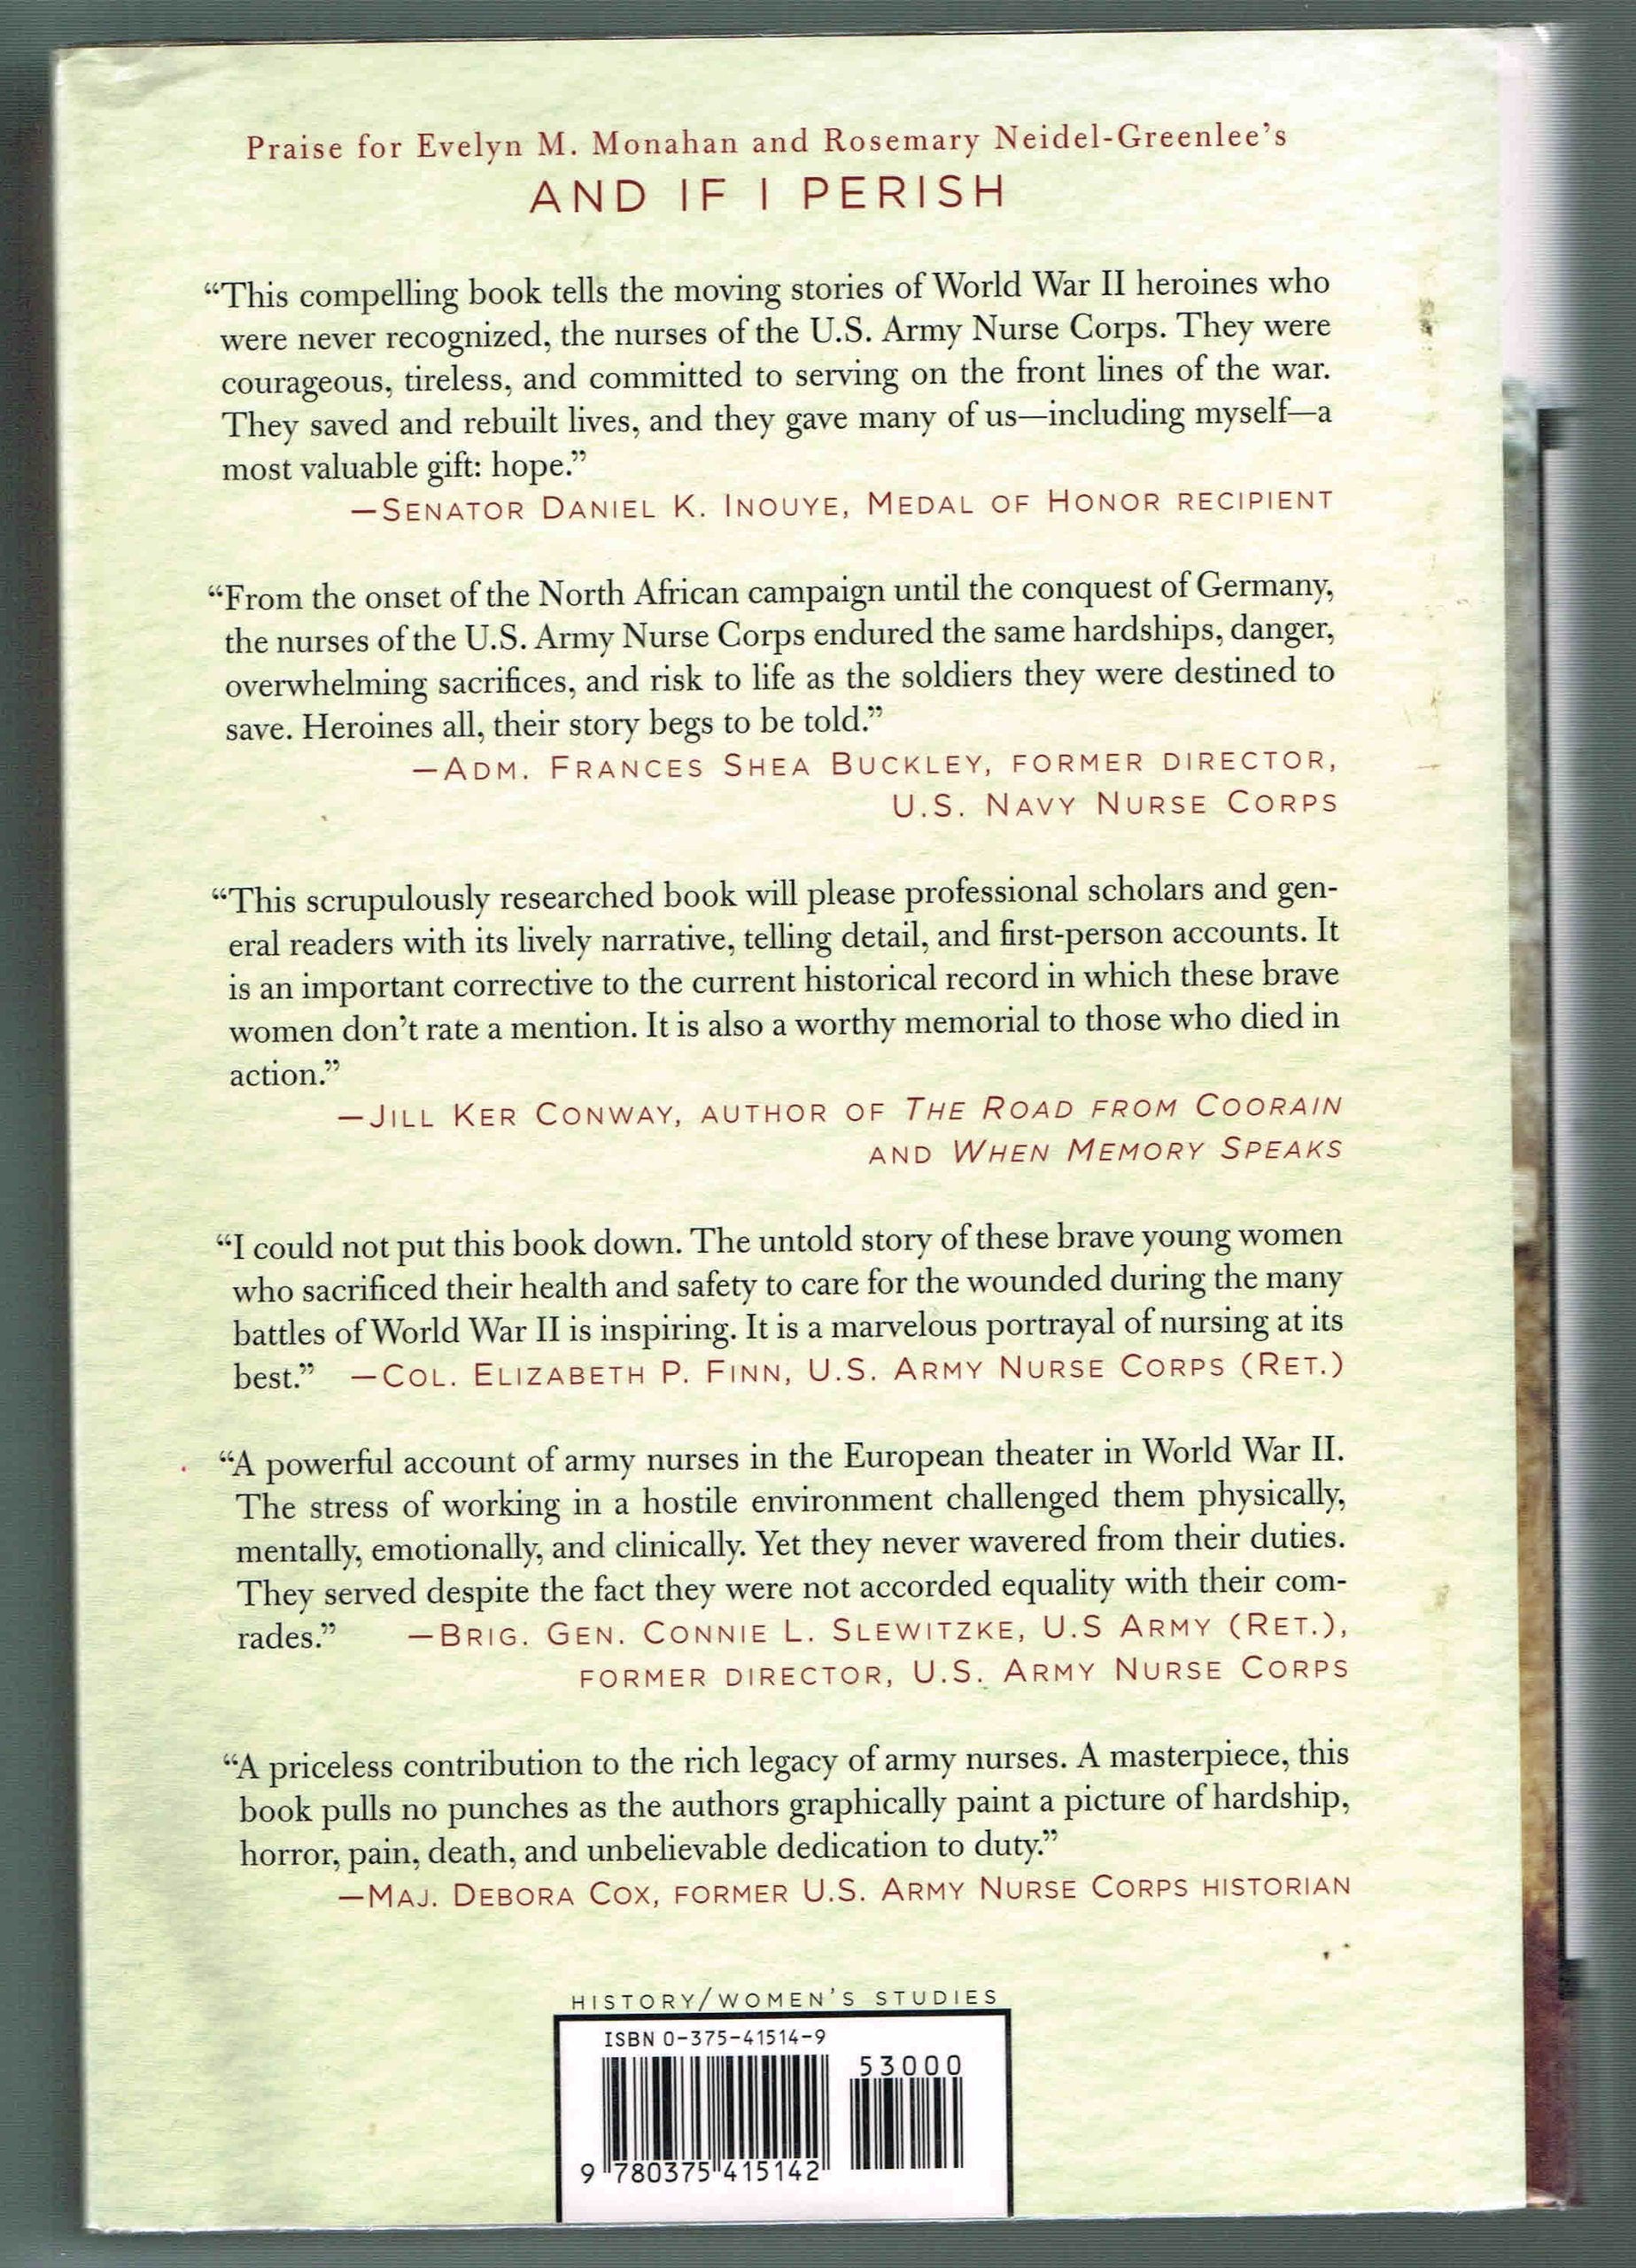 Praise for Evelyn M. Monahan and Rosemary Neidel-Greenlee's
AND IF I PERISH
“This compelling book tells the moving stories of World War II heroines who
were never recognized, the nurses of the U.S. Army Nurse Corps. They were
courageous, tireless, and committed to serving on the front lines of the war.
They saved and rebuilt lives, and they gave many of us—including myself—a
most valuable gift: hope.”
—SENATOR DANIEL K. INOUYE, MEDAL OF HONOR RECIPIENT
“From the onset of the North African campaign until the conquest of Germany,
the nurses of the U.S. Army Nurse Corps endured the same hardships, danger,
overwhelming sacrifices, and risk to life as the soldiers they were destined to
save. Heroines all, their story begs to be told.”
—ADM. FRANCES SHEA BUCKLEY, FORMER DIRECTOR,
U.S. NAVY NURSE CORPS
“This scrupulously researched book will please professional scholars and gen-
eral readers with its lively narrative, telling detail, and first-person accounts. It
is an important corrective to the current historical record in which these brave
women don't rate a mention. It is also a worthy memorial to those who died in
action.”
—JILL KER CONWAY, AUTHOR OF THE ROAD FROM COORAIN
AND WHEN MEMORY SPEAKS
“I could not put this book down. The untold story of these brave young women
who sacrificed their health and safety to care for the wounded during the many
battles of World War II is inspiring. It is a marvelous portrayal of nursing at its
best.” —COL. ELIZABETH P. FINN, U.S. ARMY NURSE CORPS (RET.)
“A powerful account of army nurses in the European theater in World War II.
The stress of working in a hostile environment challenged them physically,
mentally, emotionally, and clinically. Yet they never wavered from their duties.
They served despite the fact they were not accorded equality with their com-
rades.” —BRIG. GEN. CONNIE L. SLEWITZKE, U.S ARMY (RET.),
FORMER DIRECTOR, U.S. ARMY NURSE CORPS
“A priceless contribution to the rich legacy of army nurses. A masterpiece, this
book pulls no punches as the authors graphically paint a picture of hardship,
horror, pain, death, and unbelievable dedication to duty.”
—MAJ. DEBORA COX, FORMER U.S. ARMY NURSE CORPS HISTORIAN
HISTORY/WOMEN'S STUDIES
ISBN 0-375-41514-9
53000
9 780375 415142